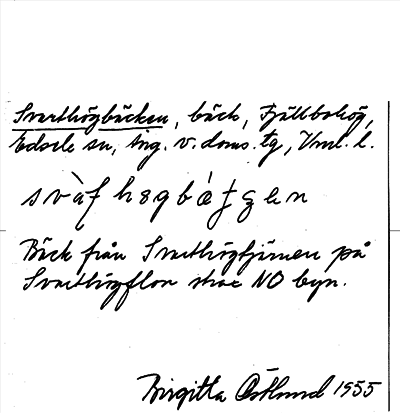 Svarthögbäcken, bäck, Fjällbohög,
Edsele sn, Ång. v. doms. tg, Vnl. l.
svàf høgbátʒen
Bäck från Svarthögtjärnen på
Svarthögflon strax NO byn.
Birgitta Östlund 1955